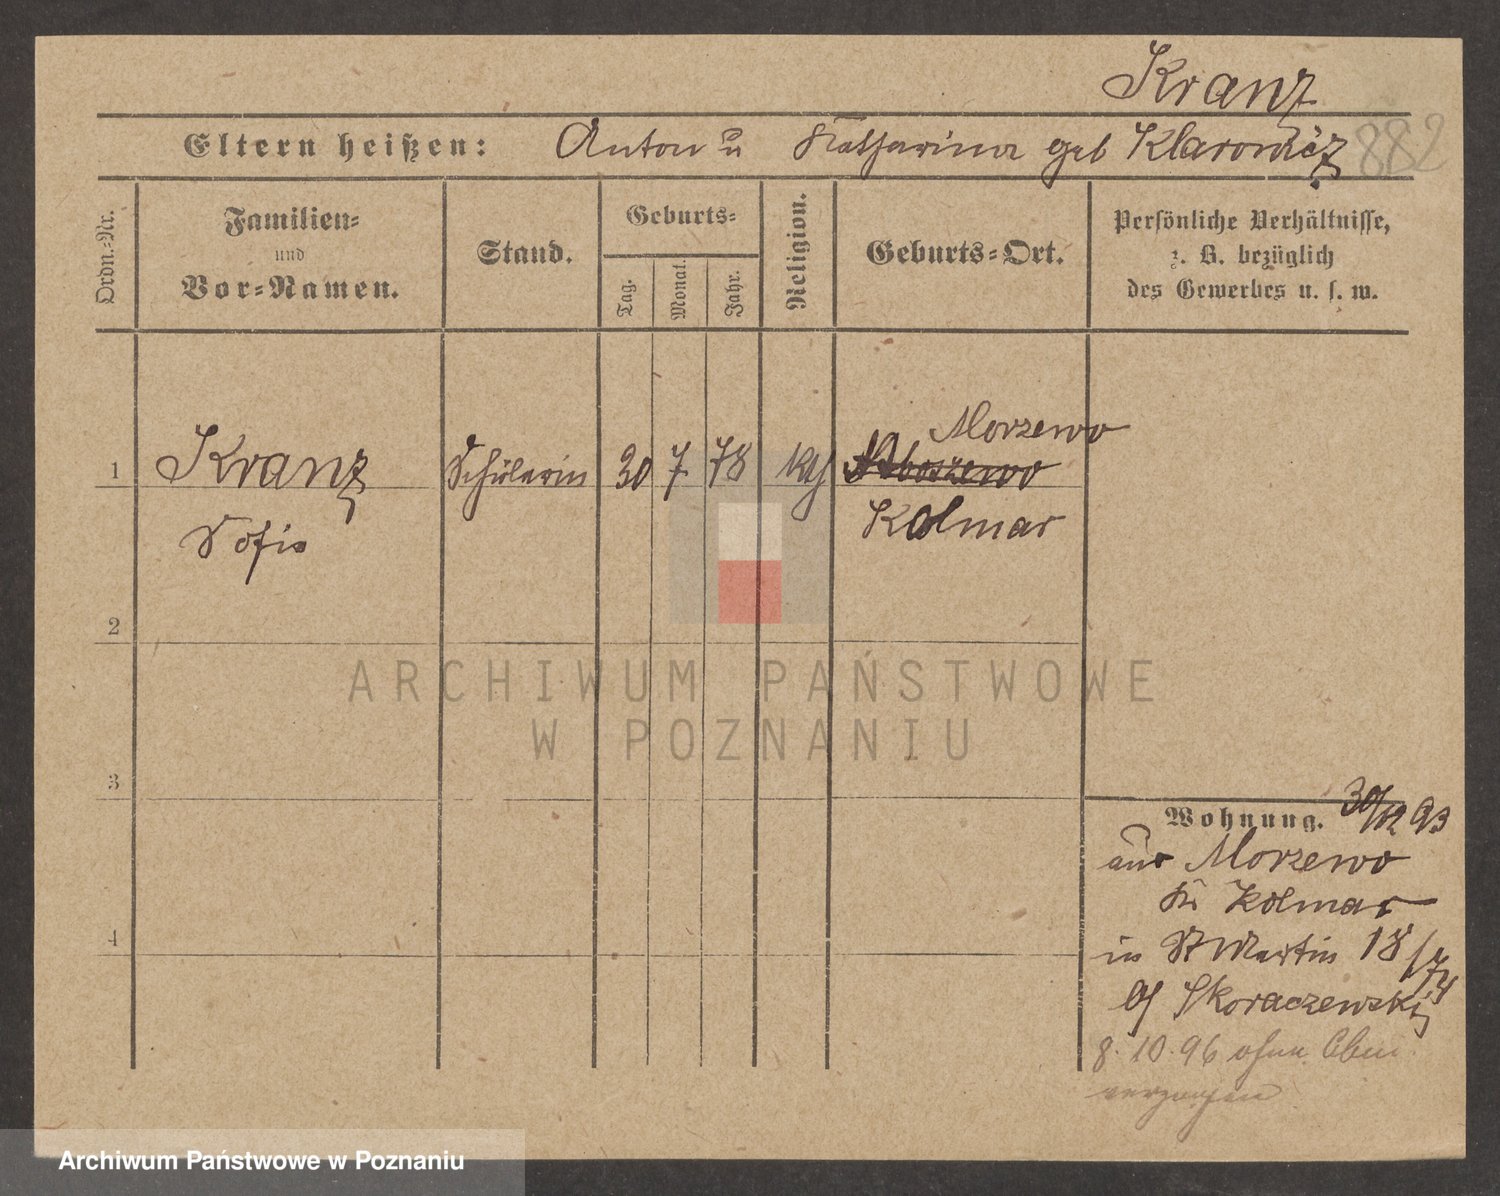 Kranz
Eltern heißen: Anton u Katharina geb Klarowicz 882
Ordn.-Nr.
Familien- und Vor-Namen.
Stand.
Geburts-
Tag.
Monat.
Jahr.
Religion.
Geburts-Ort.
Persönliche Verhältnisse,
z. B. bezüglich
des Gewerbes u. s. w.
Morzewo
1 Kranz Schülerin 30 7 78 kth
Sofie
Kolmar
2
3
4
Wohnung. 30/12 93
aus Morzewo
Kr Kolmar
in St Martin 18/74
bj Skoraczewski
8.10.96 ohne Abm.
verzogen
ARCHIWUM PAŃSTWOWE
W POZNANIU
Archiwum Państwowe w Poznaniu